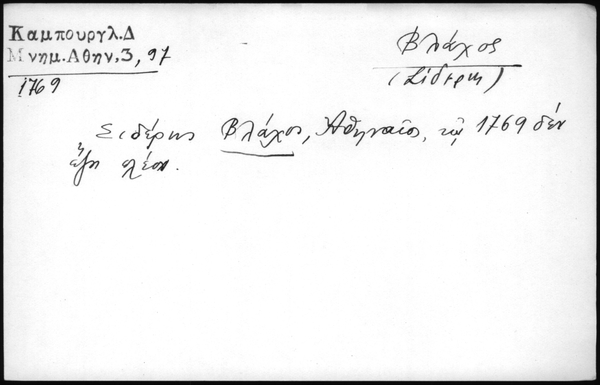 Καμπουργλ.Δ
Μνημ.Αθην.3, 97
1769
Βλάχος
(Σιδερης)
Σιδέρης Βλάχος, Ἀθηναῖος, τῷ 1769 δέν
ἔζη πλέον.